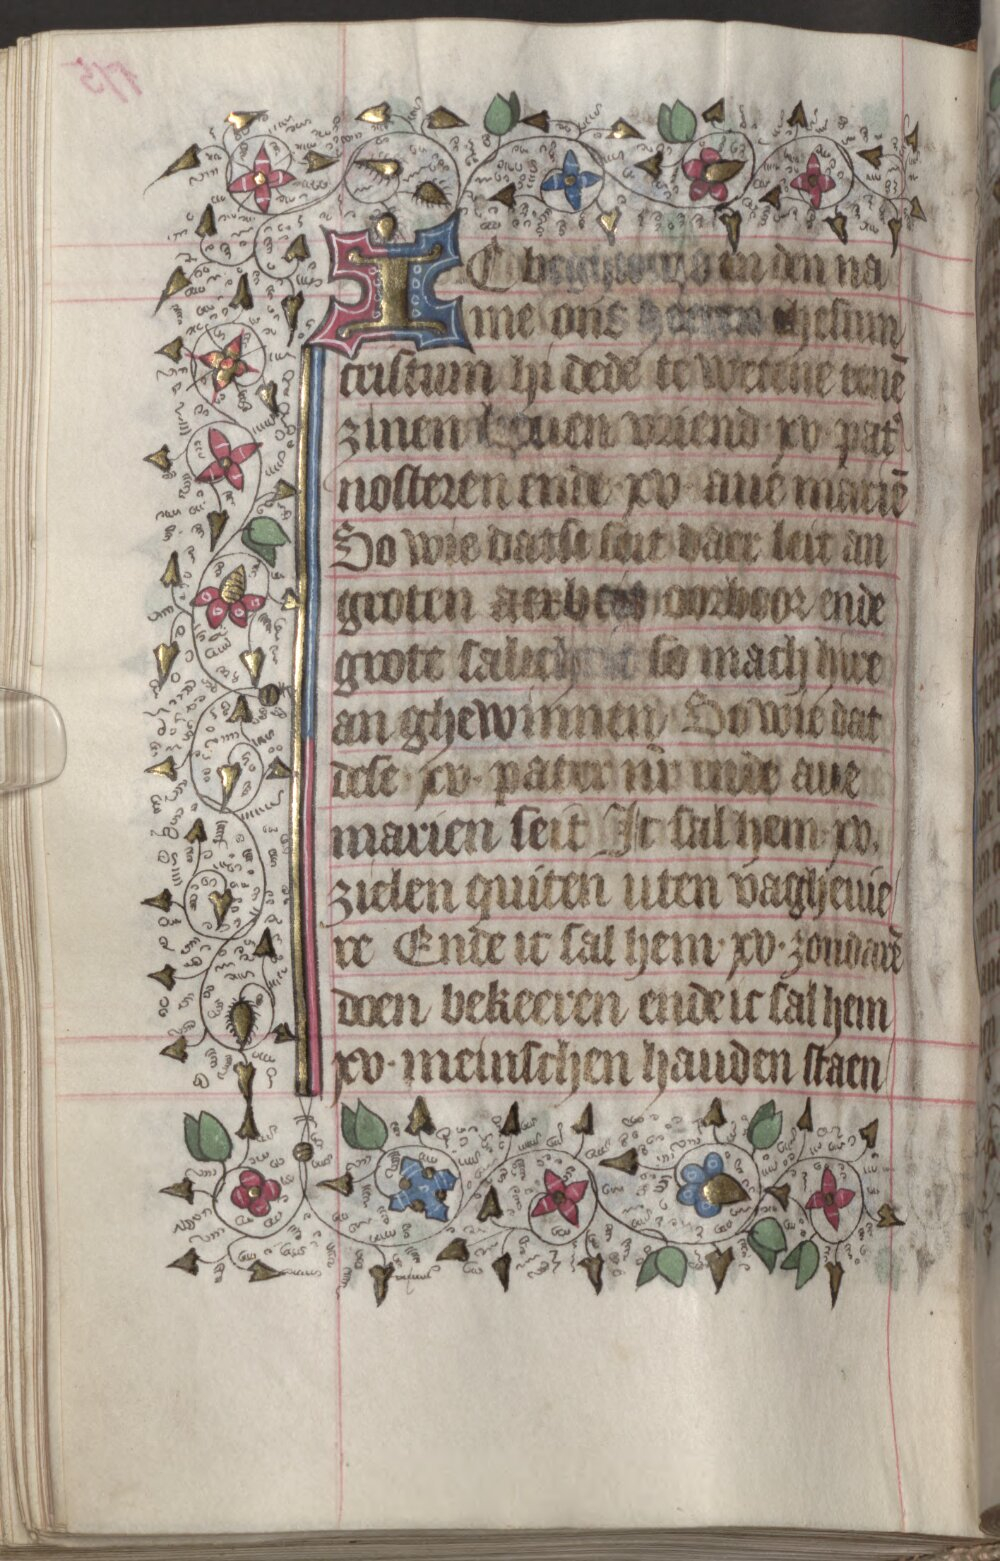 IC in den na
me ons heeren ihesum
cristum hi dede te wetene eenē
zinen lieuen vriend· xv· pat̄
nosteren ende· xv· aue mariē
So wie datse seit daer leit an
groten aerbeit oorboor ende
grote salicheit so mach hire
an ghewinnen So wie dat
dese· xv· pater nr̄ ende aue
marien seit It sal hem· xv·
zielen quiten uten vagheuie
re Ende it sal hem· xv· zondarē
doen bekeeren ende it sal hem
xv· meinschen hauden staen